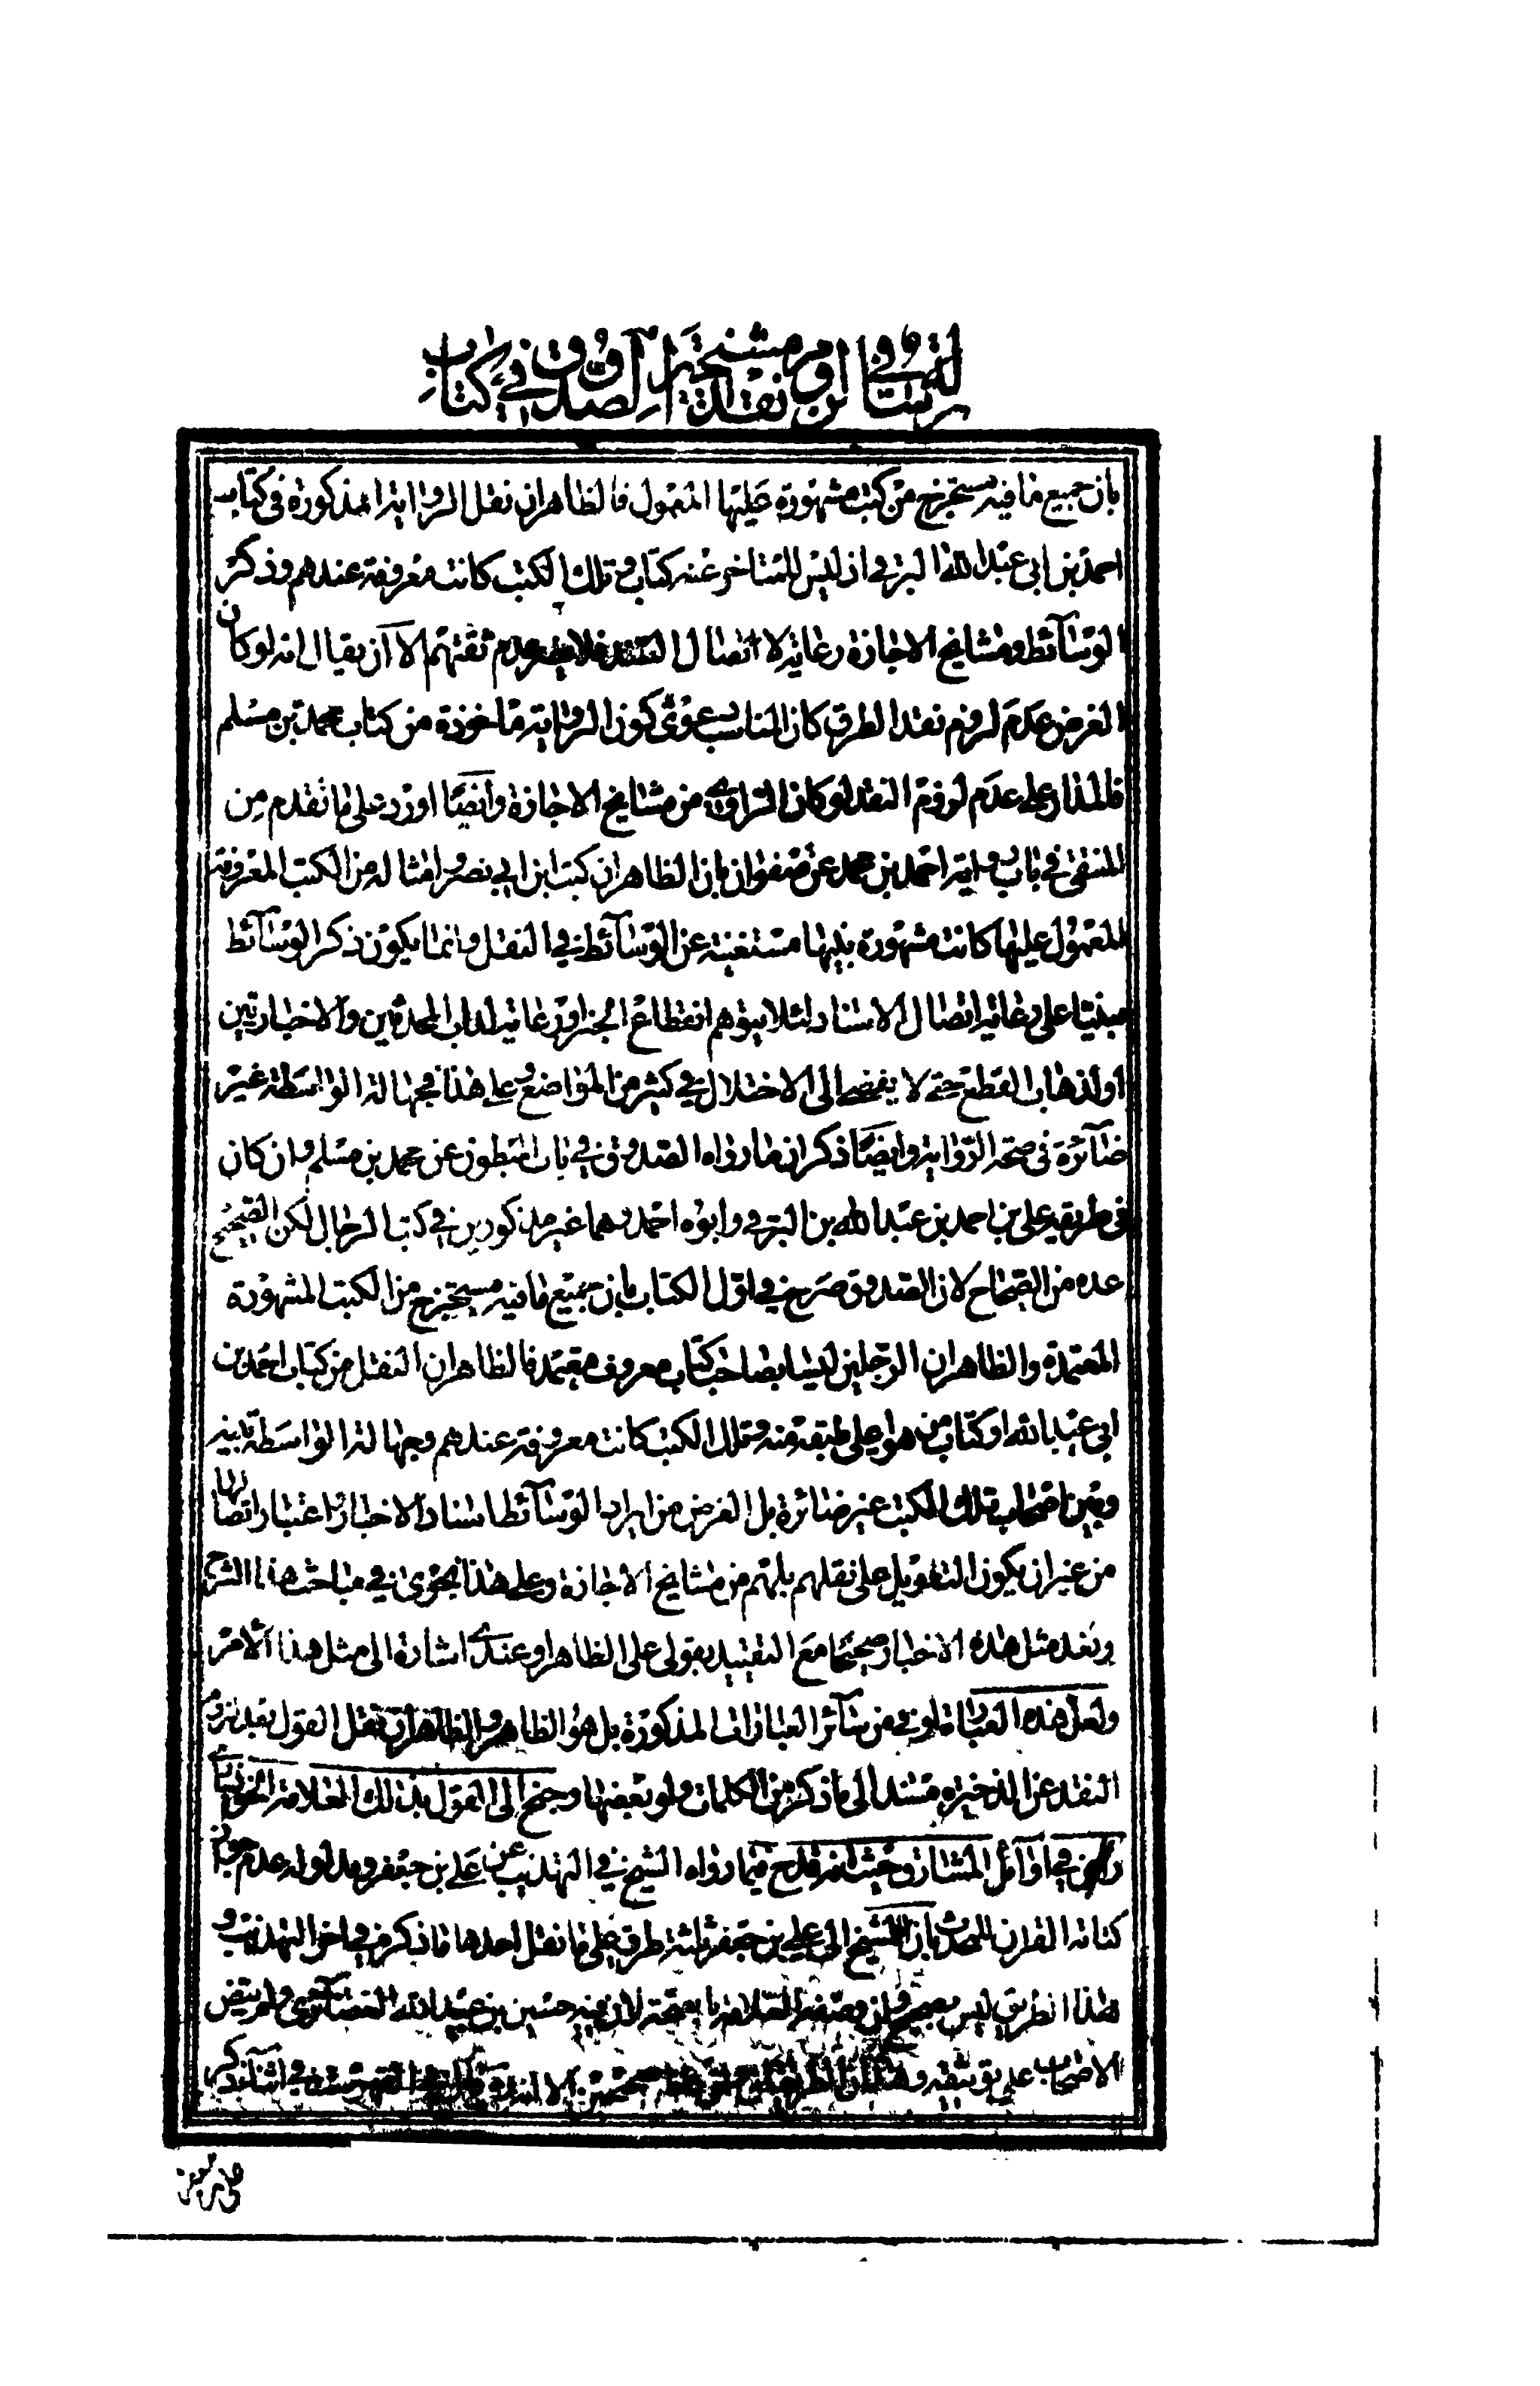 رسالة في لزوم نقد مشيخة الصدوق في كتاب
بان جميع ما فيه مستخرج من كتب مشهورة عليها المعول فالظاهر ان نقل الرواية المذكورة في كتاب
احمد بن ابي عبد الله البرقي اذ ليس للمتاخر عنه كتاب وتلك الكتب كانت معروفة عندهم وذكر
الوسآئط ومشايخ الاجازة رعاية لاتصال السند فلا يضر عدم ثقتهم الا ان يقال انه لو كان
الغرض عدم لزوم نقد الطرق كان المناسب دعوى كون الرواية ماخوذة من كتاب محمد بن مسلم
فالمدار على عدم لزوم النقد لو كان الراوي من مشايخ الاجازة وايضا اورد على ما تقدم من
المنتقى في باب رواية احمد بن محمد عن صفوان بان الظاهر ان كتب ابن ابي نصر وامثاله من الكتب المعروفة
المعول عليها كانت مشهورة بينها مستغنية عن الوسآئط في النقل وانما يكون ذكر الوسآئط
مبنيا على رعاية اتصال الاسناد لئلا يتوهم انقطاع الخبر او رعاية لداب المحدثين والاخباريين
او لذهاب القطع حتى لا يفضي الى الاختلال في كثير من المواضع وعلى هذا فجهالة الواسطة غير
ضآئرة في صحة الرواية وايضا ذكر ان ما رواه الصدوق في باب المبطون عن محمد بن مسلم وان كان
في طريقه علي بن احمد بن عبد الله بن البرقي وابوه احمد وهما غير مذكورين في كتب الرجال لكن الصحيح
عده من الصحاح لان الصدوق صرح في اول الكتاب بان جميع ما فيه مستخرج من الكتب المشهورة
المعتمدة والظاهر ان الرجلين ليسا بصاحب كتاب معروف معتمد فالظاهر ان النقل من كتاب احمد بن
ابي عبد الله او كتاب من هو اعلى طبقة منه وتلك الكتب كانت معروفة عندهم وجهالة الواسطة بينه
وبين اصحاب تلك الكتب غير ضائرة بل الغرض من ايراد الوسآئط اسناد الاخبار باعتبار اتصالها
من غير ان يكون التعويل على نقلهم بل هم من مشايخ الاجازة وعلى هذا نجري في مباحث هذا الشرح
ونعد مثل هذه الاخبار صحيحا مع التقييد بقولي على الظاهر او عندي اشارة الى مثل هذا الامر
ولعل هذه العبارة اوفى من سآئر العبارات المذكورة بل هو الظاهر نقل القول بعدم لزوم
النقد عن الذخيرة مستندا الى ما ذكر من الكلمات ولو بعضها وجنح الى القول بذلك العلامة الخونساري
في اوآئل المشارق حيث انه قدح فيما رواه الشيخ في التهذيب عن علي بن جعفر ومدلوله عدم جواز
كتابة القران للمحدث بان للشيخ الى علي بن جعفر ثلثة طرق على ما نقل احدها ما ذكره في اخر التهذيب و
هذا الطريق ليس بصحيح وان وصفه العلامة بالصحة لان فيه حسين بن عبيد الله الغضآئري ولم ينص
الاصحاب على توثيقه و في اثنآء ذكر